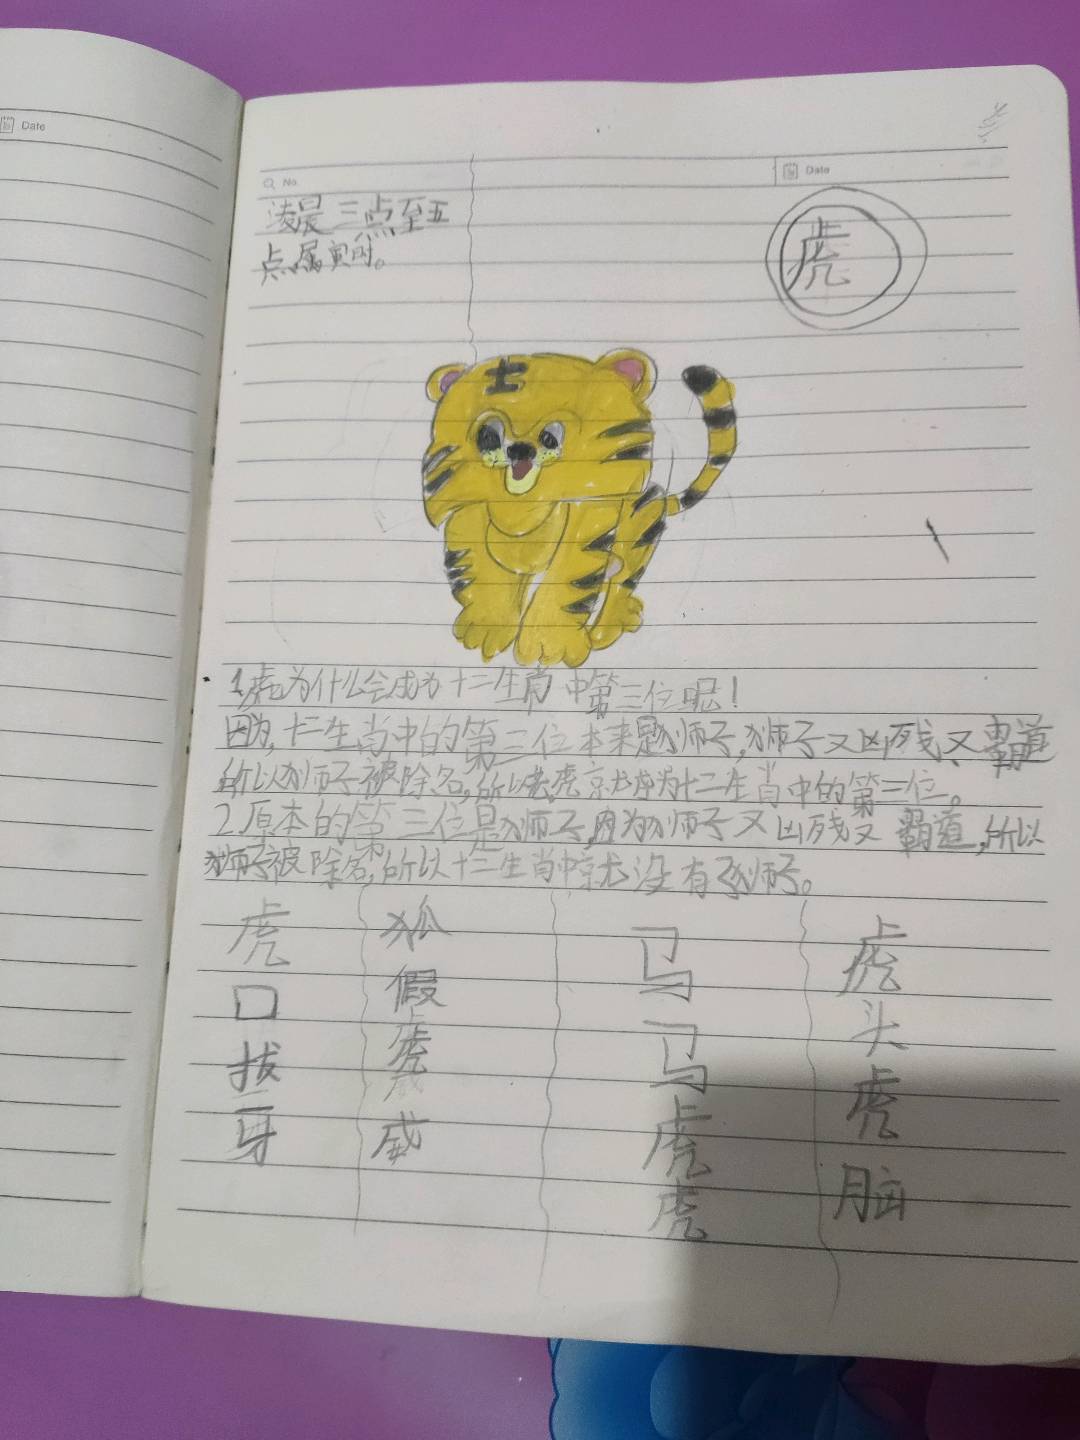 Date
No.
Date
凌晨三点至五
点属寅时。
虎
1.虎为什么会成为十二生肖中第三位呢!
因为,十二生肖中的第三位本来是狮子,狮子又凶残、又霸道
所以狮子被除名,所以老虎就成为十二生肖中的第三位。
2.原本的第三位是狮子,因为狮子又凶残又霸道,所以
狮子被除名,所以十二生肖中就没有狮子。
虎口拔牙
狐假虎威
马马虎虎
虎头虎脑